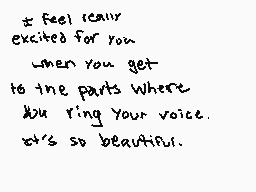 I feel really
excited for you
when you get
to the parts where
you ring your voice.
it's so beautiful.